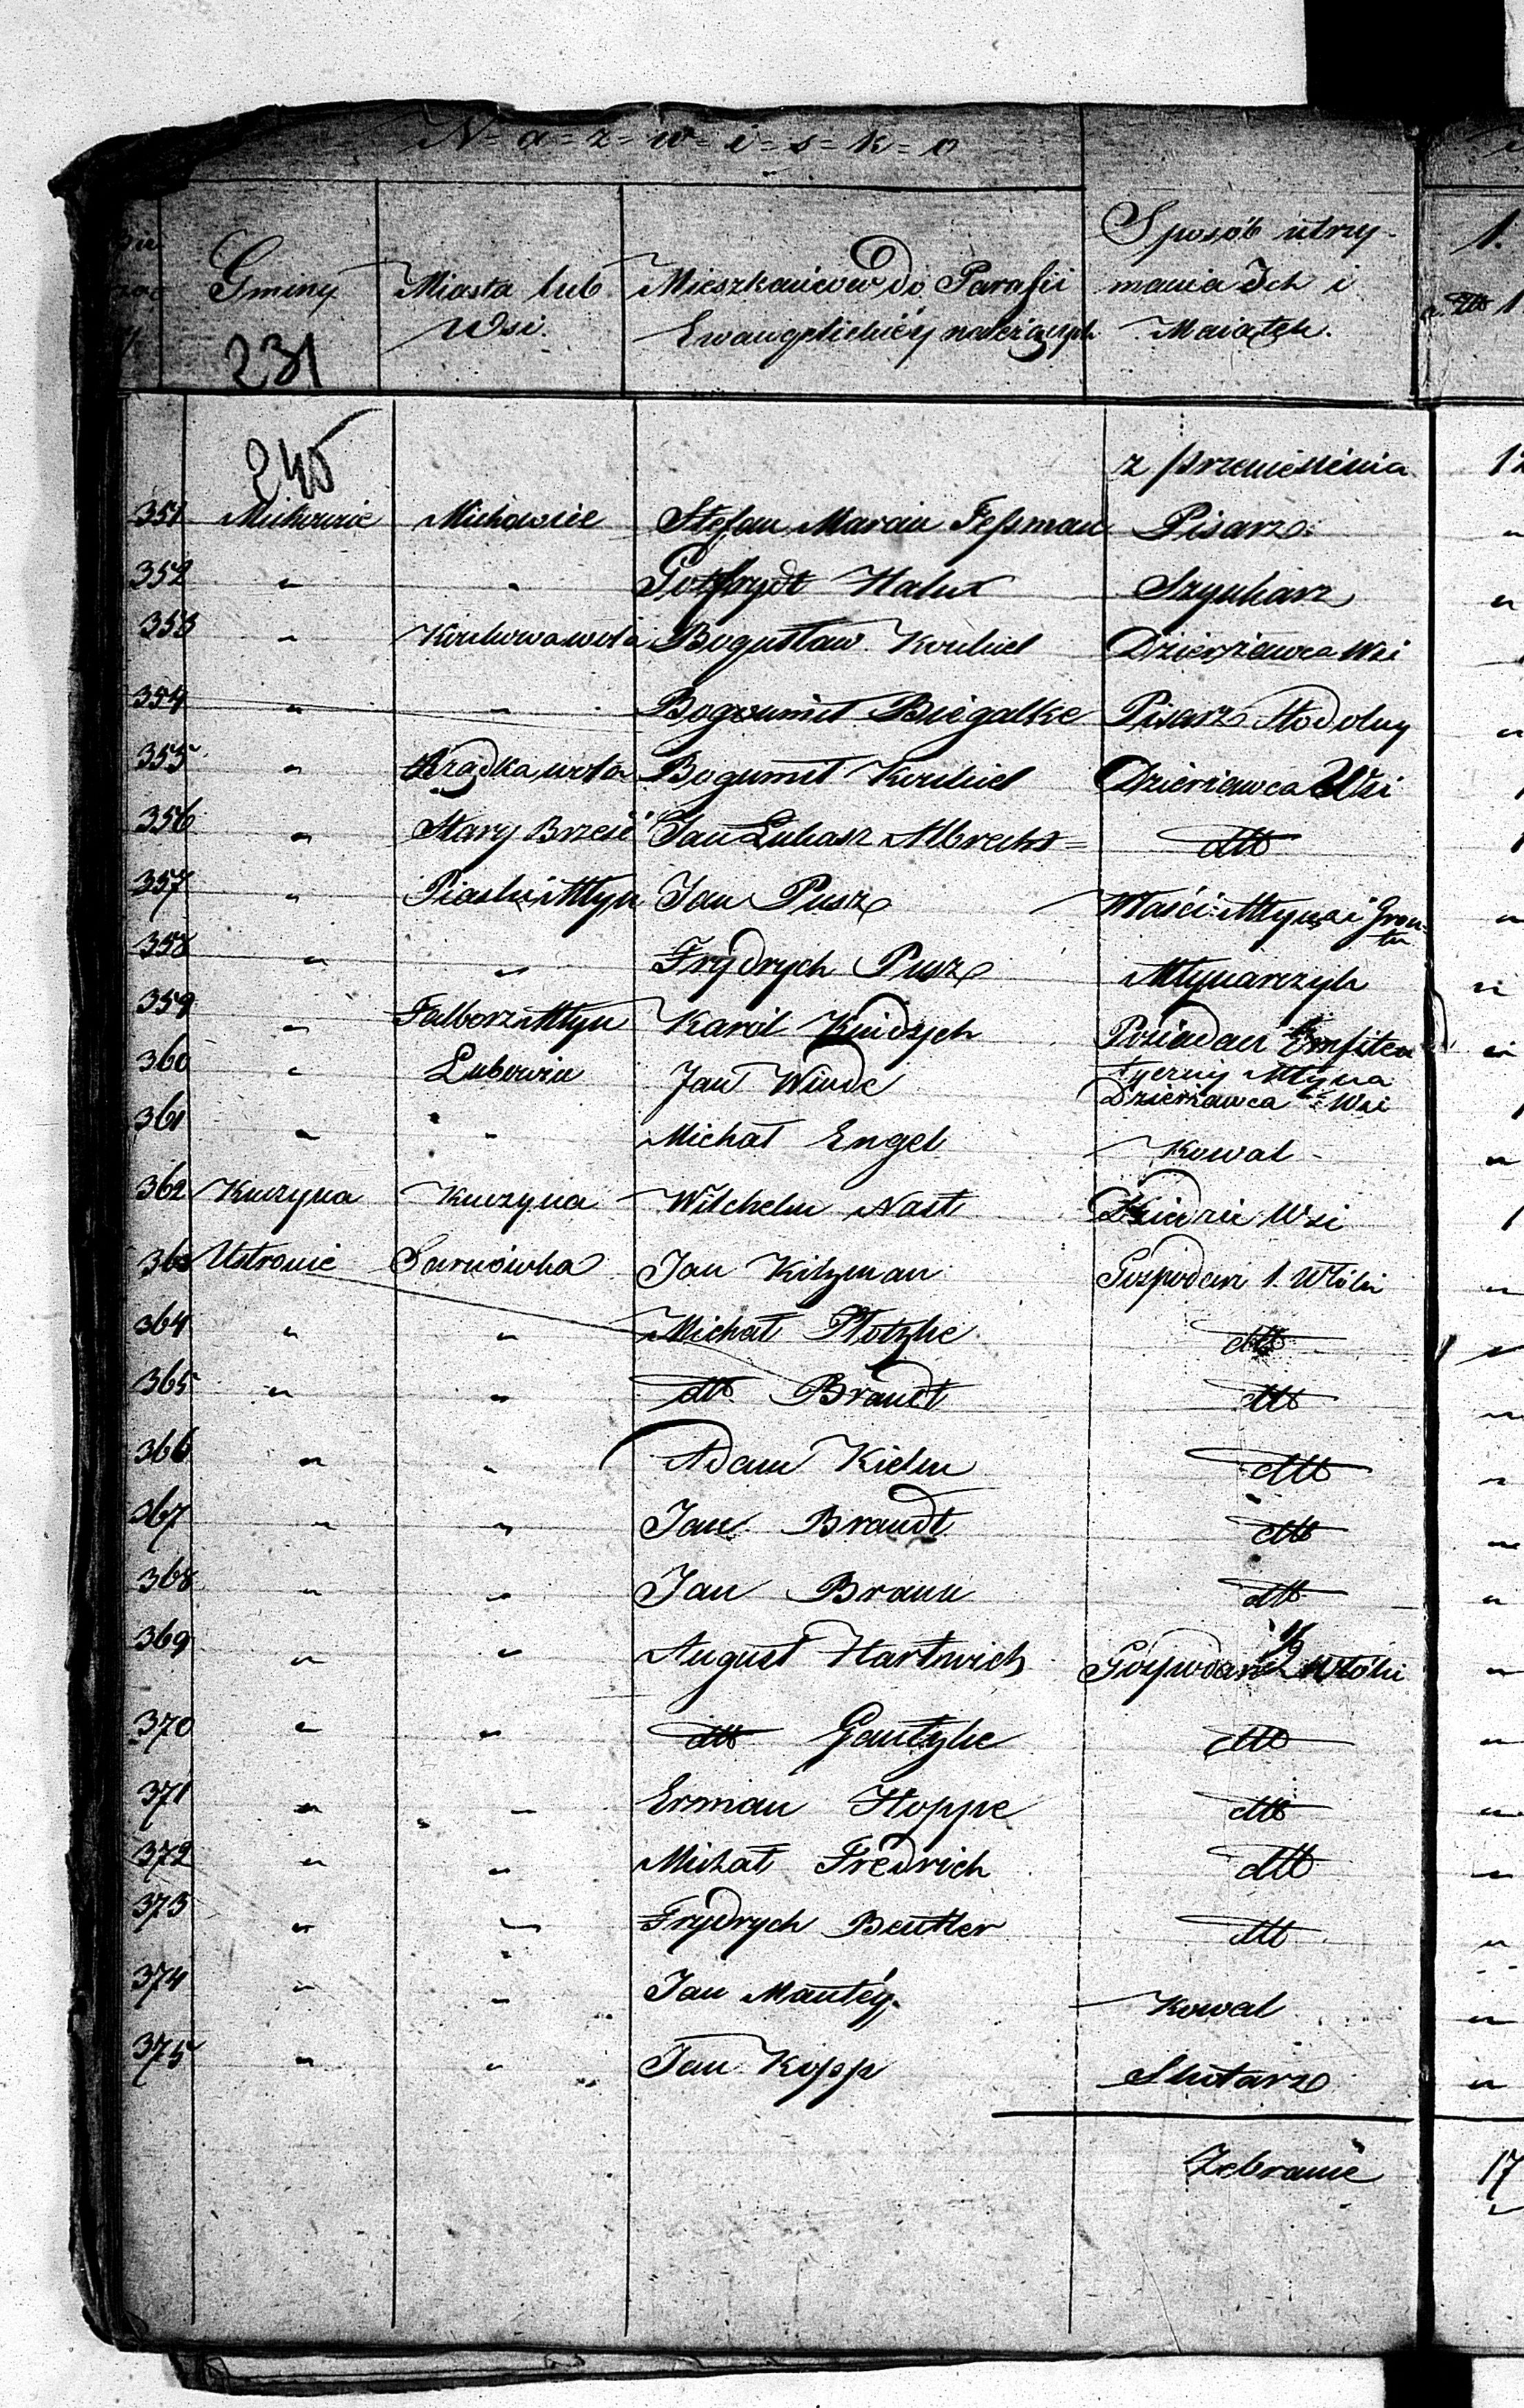 N=a=z=w=i=s=k=o
Gminy Miasta lub Wsi. Mieszkańców do Parafii Ewangelickiéy należących Sposób utrzymania Ich i Maiątek. 1.
231
240
z przeniesienia
351 Michowice Stefan Marcin Feßman Pisarz
352 " " Gotfrydt Szynkarz
353 " Bogusław Dzierżawca Wsi
354 " " Bogumił Biegalke Pisarz Stodolny
355 " Rządka wola Bogumił Dzierżawca Wsi
356 " Stary Brześć Jan Łukasz Albrecht dtto
357 " Piaski Młyn Jan Pusz Właści: Młyna i Gruntu
358 " " Frydrych Pusz Młynarczyk
359 " Falborz Młyn Karól Posiadacz Emfiteutyczny Młyna
360 " Jan Winde Dzierżawca Wsi
361 " " Michał Engel Kowal
362 Kuczyna Kuczyna Wilchelm Nast Dziedzic Wsi
363 Ustronie Sarnówka Jan Kitzman Gospodarz 1. Włóki
364 " " Michał Plotzke dtto
365 " " dtto Brandt dtto
366 " " Adam Kielm dtto
367 " " Jan Brandt dtto
368 " " Jan Braun dtto
369 " " August Hartwich Gospodarz 1/2 Włóki
370 " " dtto Gantzke dtto
371 " " Erman Hoppe dtto
372 " " Michał Fredrich dtto
373 " " Frydrych Beutler dtto
374 " " Jan Mantéy. Kowal
375 " " Jan Kopp Skotarz
Zebranie 17